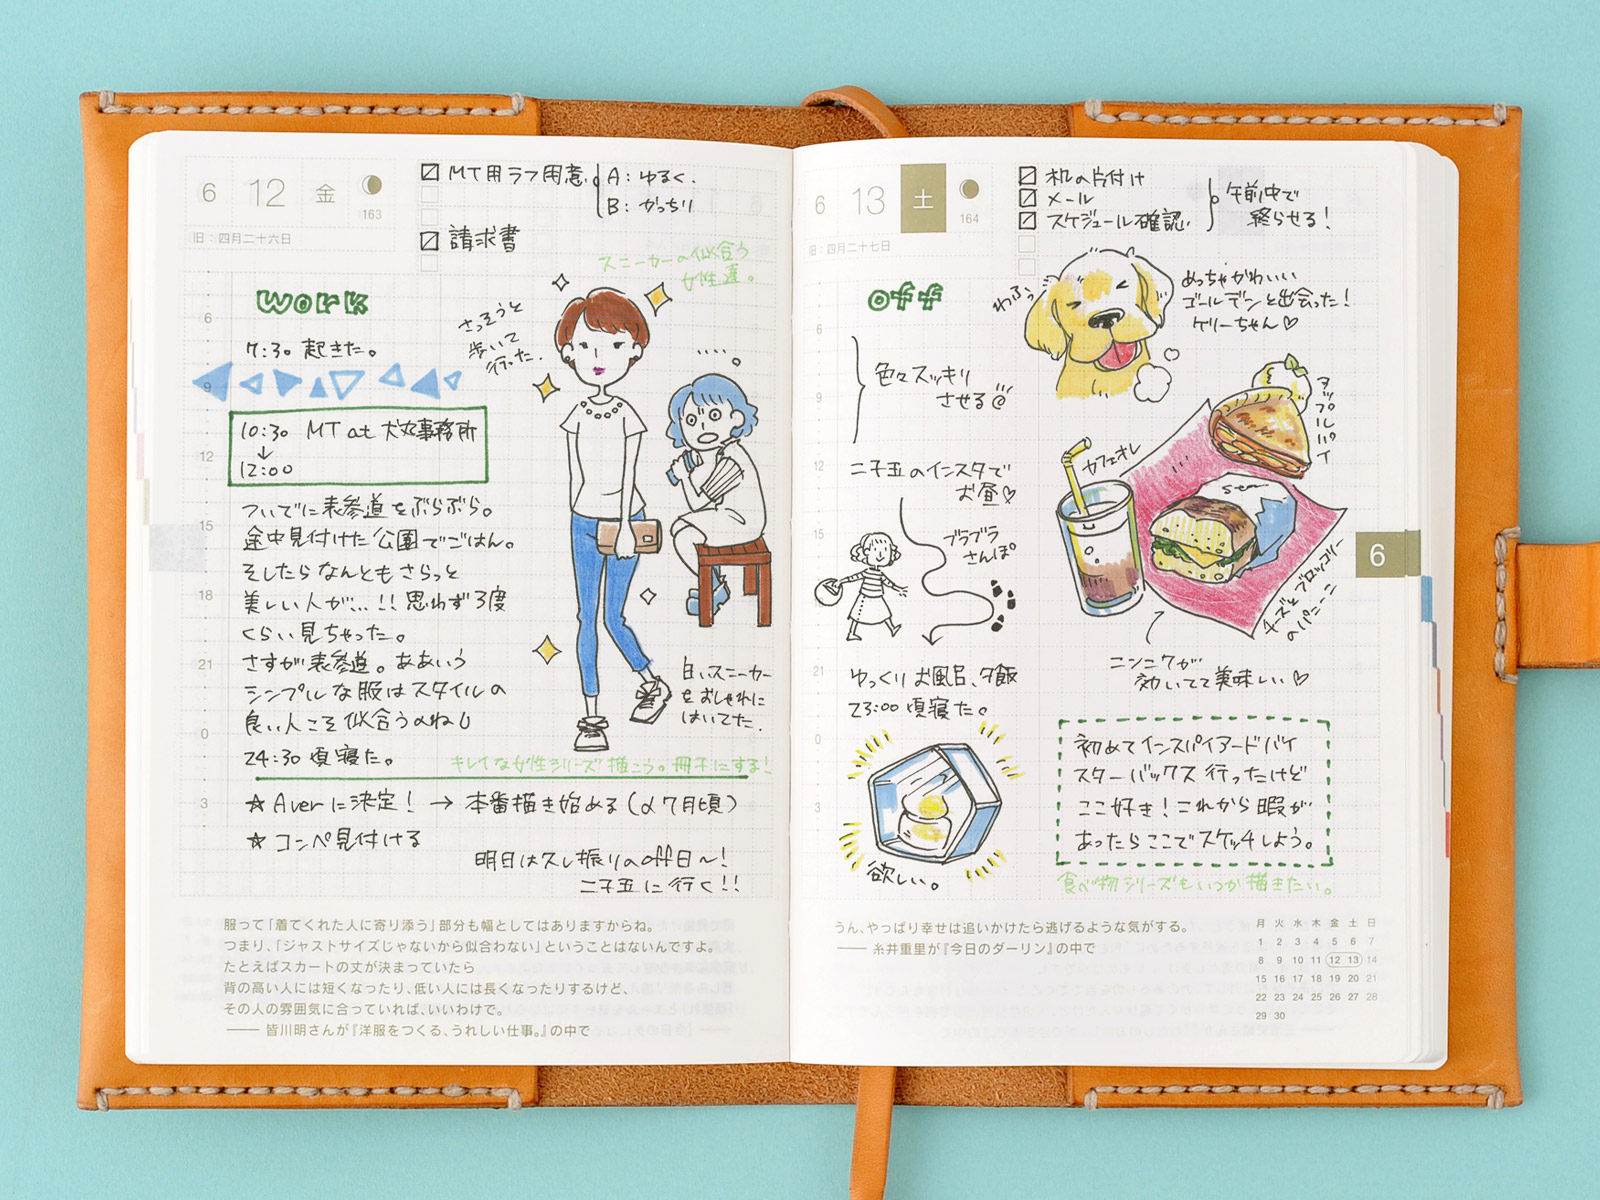 6 12 金
163
旧：四月二十六日
☑ MT用ラフ用意
A：ゆるく.
B：がっちり
☑ 請求書
スニーカーの似合う
女性達。
work
6
9
12
15
18
21
0
3
7:30 起きた。
10:30 MT at 犬丸事務所
↓
12:00
ついでに表参道をぶらぶら。
途中見付けた公園でごはん。
そしたらなんともさらっと
美しい人が…!! 思わず3度
くらい見ちゃった。
さすが表参道。ああいう
シンプルな服はスタイルの
良い人こそ似合うのね
24:30 頃寝た。
さっそうと
歩いて
行った.
白いスニーカー
をおしゃれに
はいてた.
キレイな女性シリーズ描こう。冊子にする!
☆ Averに決定! → 本番描き始める(〆7月頃)
☆ コンペ見付ける
明日は久し振りのoff日〜!
二子玉に行く!!
服って「着てくれた人に寄り添う」部分も幅としてはありますからね。
つまり、「ジャストサイズじゃないから似合わない」ということはないんですよ。
たとえばスカートの丈が決まっていたら
背の高い人には短くなったり、低い人には長くなったりするけど、
その人の雰囲気に合っていれば、いいわけで。
—— 皆川明さんが『洋服をつくる、うれしい仕事。』の中で
6 13 土
164
旧：四月二十七日
☑ 机の片付け
☑ メール
☑ スケジュール確認.
午前中で
終らせる!
off
6
9
12
15
18
21
0
3
わふっ
めっちゃかわいい
ゴールデンと出会った!
ケリーちゃん♡
色々スッキリ
させる
二子玉のインスタで
お昼♡
ブラブラ
さんぽ
カフェオレ
アップルパイ
チーズとブロッコリー
のパニーニ
ニンニクが
効いてて美味しい♡
ゆっくりお風呂、夕飯
23:00 頃寝た。
欲しい。
初めてインスパイアードバイ
スターバックス行ったけど
ここ好き! これから暇が
あったらここでスケッチしよう。
食べ物シリーズもいつか描きたい。
6
うん、やっぱり幸せは追いかけたら逃げるような気がする。
—— 糸井重里が『今日のダーリン』の中で
月 火 水 木 金 土 日
1 2 3 4 5 6 7
8 9 10 11 12 13 14
15 16 17 18 19 20 21
22 23 24 25 26 27 28
29 30